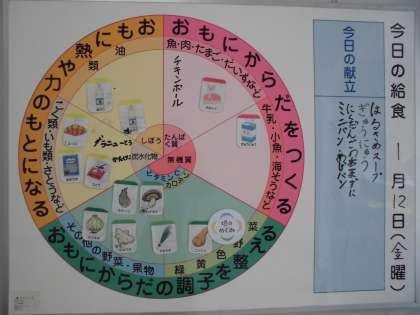 今日の給食 1月12日(金曜)
今日の献立
はるさめスープ
ぎゅうにゅう
ミニパン
おもにからだをつくる
魚・肉・たまご・だいずなど
牛乳・小魚・海そうなど
おもにからだの調子を整える
緑黄色野菜
その他の野菜・果物
おもに熱や力のもとになる
こく類・いも類・さとうなど
油類
チキンボール
グラニューとう
しぼう
たんぱく質
炭水化物
無機質
ビタミンC
カロチン
畑のめぐみ